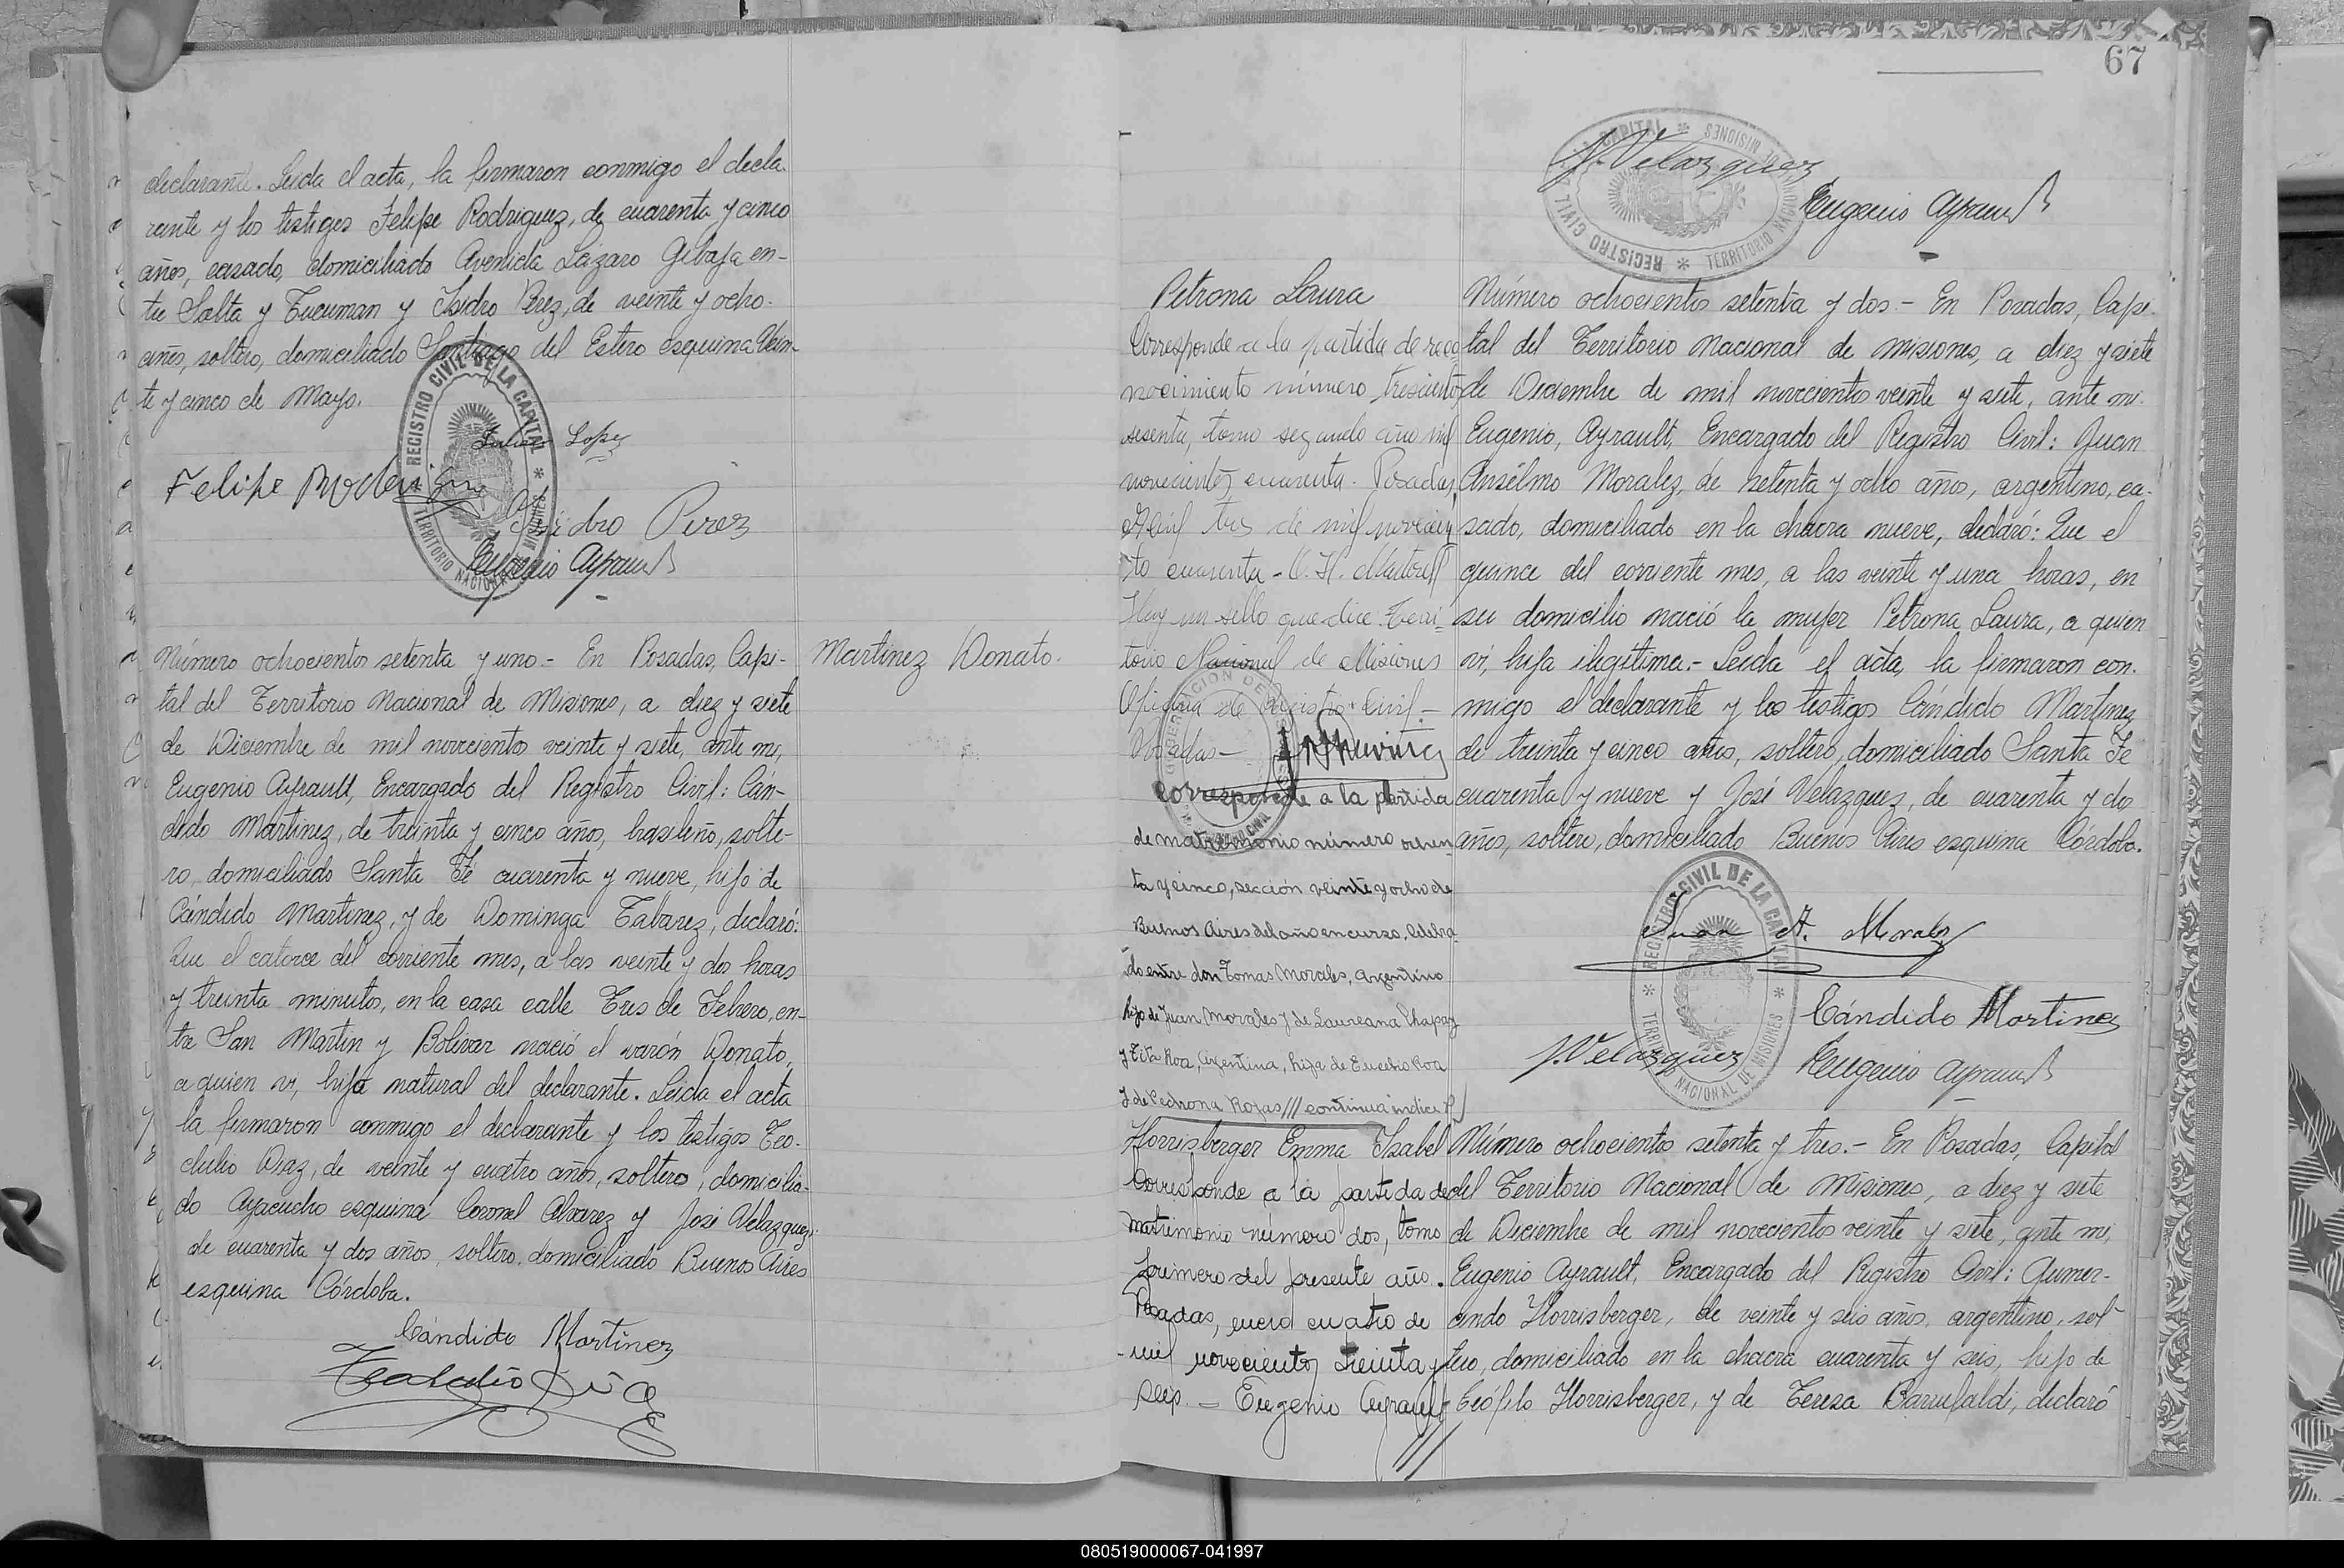 declarante. Leida el acta, la firmaron conmigo el decla-
rante y los testigos Felipe Rodriguez, de cuarenta y cinco
años, casado, domiciliado Avenida Lázaro Gibaja en-
tre Salta y Tucuman y Isidro Perez, de veinte y ocho
años, soltero, domiciliado Santiago del Estero esquina Vein-
te y cinco de Mayo.
REGISTRO CIVIL DE LA CAPITAL * TERRITORIO NACIONAL DE MISIONES *
Lopez
Felipe Rodriguez
Isidro Perez
Eugenio Ayrault
Número ochocientos setenta y uno.- En Posadas, Capi-
tal del Territorio Nacional de Misiones, a diez y siete
de Diciembre de mil novecientos veinte y siete, ante mi,
Eugenio Ayrault, Encargado del Registro Civil: Cán-
dido Martinez, de treinta y cinco años, brasileño, solte-
ro, domiciliado Santa Fé cuarenta y nueve, hijo de
Cándido Martinez, y de Dominga Tabarez, declaró:
Que el catorce del corriente mes, a las veinte y dos horas
y treinta minutos, en la casa calle Tres de Febrero, en-
tre San Martin y Bolivar nació el varón Donato,
a quien vi, hijo natural del declarante. Leida el acta
la firmaron conmigo el declarante y los testigos Teo-
dulio Diaz, de veinte y cuatro años, soltero, domicilia-
do Ayacucho esquina Coronel Alvarez y José Velazquez,
de cuarenta y dos años, soltero, domiciliado Buenos Aires
esquina Córdoba.
Cándido Martinez
Teodulio Diaz
Martinez Donato.
67
REGISTRO CIVIL DE LA CAPITAL * TERRITORIO NACIONAL DE MISIONES *
J. Velazquez
Eugenio Ayrault
Petrona Laura
Corresponde a la partida de reco
nocimiento número trescientos
sesenta, tomo segundo año mil
novecientos cuarenta. Posadas,
Abril tres de mil novecien
to cuarenta -
Hay un sello que dice: Terri-
torio Nacional de Misiones
Oficina de Registro Civil.-
Posadas-
Corresponde a la partida
de matrimonio número ochen
ta y cinco, sección veinte y ocho de
Buenos Aires del año en curso, celebra
do entre don Tomas Morales, argentino
hijo de Juan Morales y de Laureana Chapay
y Tita Roa, Argentina, hija de Eucebio Roa
y de Pedrona Rojas /// continua indice P/
Número ochocientos setenta y dos.- En Posadas, Capi-
tal del Territorio Nacional de Misiones, a diez y siete
de Diciembre de mil novecientos veinte y siete, ante mi
Eugenio, Ayrault, Encargado del Registro Civil: Juan
Ansélmo Moralez, de setenta y ocho años, argentino, ca-
sado, domiciliado en la chacra nueve, declaró: Que el
quince del corriente mes, a las veinte y una horas, en
su domicilio nació la mujer Petrona Laura, a quien
vi, hija ilegítima.- Leida el acta, la firmaron con-
migo el declarante y los testigos Cándido Martinez
de treinta y cinco años, soltero, domiciliado Santa Fe
cuarenta y nueve y José Velazquez, de cuarenta y do
años, soltero, domiciliado Buenos Aires esquina Córdoba.
REGISTRO CIVIL DE LA CAPITAL * TERRITORIO NACIONAL DE MISIONES *
Juan A. Morales
Cándido Martinez
J. Velazquez
Eugenio Ayrault
Horrisberger Emma Isabel
Corresponde a la partida de
matrimonio número dos, tomo
primero del presente año.
Posadas, enero cuatro de
mil novecientos treinta y
seis. - Eugenio Ayrault
///
Número ochocientos setenta y tres.- En Posadas, Capital
del Territorio Nacional de Misiones, a diez y siete
de Diciembre de mil novecientos veinte y siete, ante mi,
Eugenio Ayrault, Encargado del Registro Civil: Gumer-
cindo Horrisberger, de veinte y seis años, argentino, sol-
tero, domiciliado en la chacra cuarenta y seis, hijo de
Teófilo Horrisberger, y de Teresa Barrufaldi, declaró
080519000067-041997